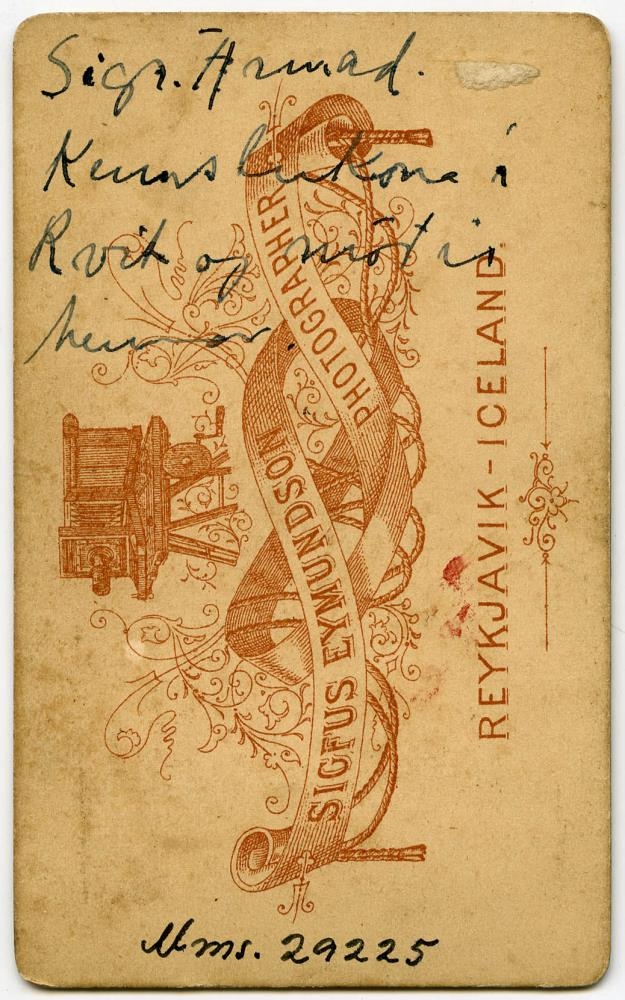 Sigr.
Kenslukona í
Rvík og
SIGFUS EYMUNDSON
PHOTOGRAPHER
REYKJAVIK - ICELAND.
Mms. 29225